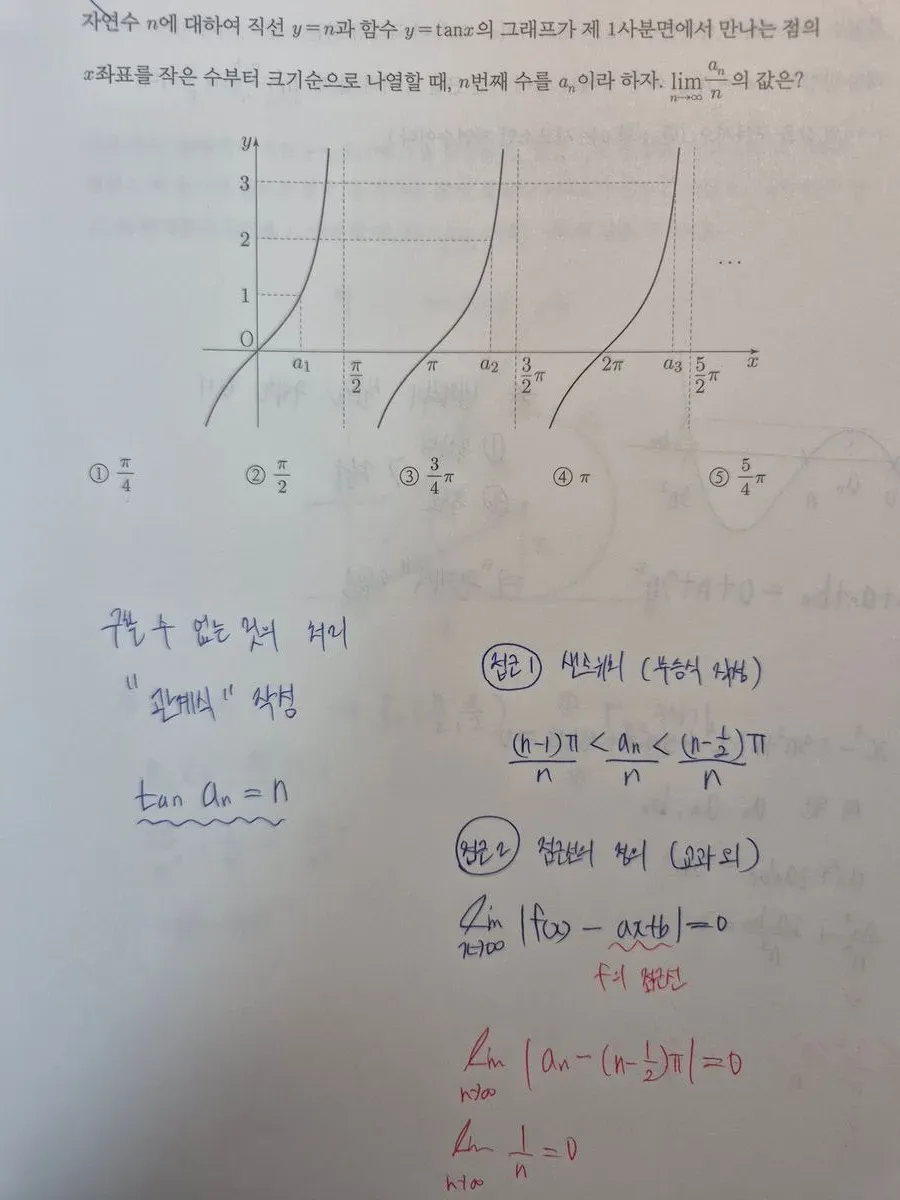 자연수 n에 대하여 직선 y=n과 함수 y=tanx의 그래프가 제 1사분면에서 만나는 점의
x좌표를 작은 수부터 크기순으로 나열할 때, n번째 수를 aₙ이라 하자. lim_{n→∞} aₙ/n 의 값은?
y
3
2
1
O
a₁ π/2 π a₂ 3/2 π 2π a₃ 5/2 π x
⋯
① π/4 ② π/2 ③ 3/4 π ④ π ⑤ 5/4 π
구할 수 없는 것의 처리
"관계식" 작성
tan aₙ = n
접근1 샌드위치 (부등식 작성)
(n-1)π/n < aₙ/n < (n-1/2)π/n
접근2 점근선의 정의 (교과 외)
lim_{x→∞} |f(x) - ax+b| = 0
f의 점근선
lim_{n→∞} |aₙ - (n-1/2)π| = 0
lim_{n→∞} 1/n = 0